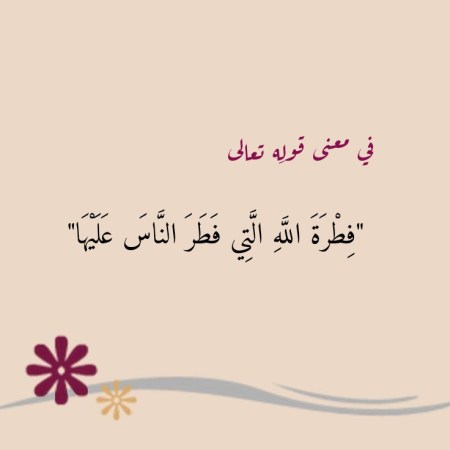 في معنى قولِه تعالى
"فِطْرَةَ اللَّهِ الَّتِي فَطَرَ النَّاسَ عَلَيْهَا"